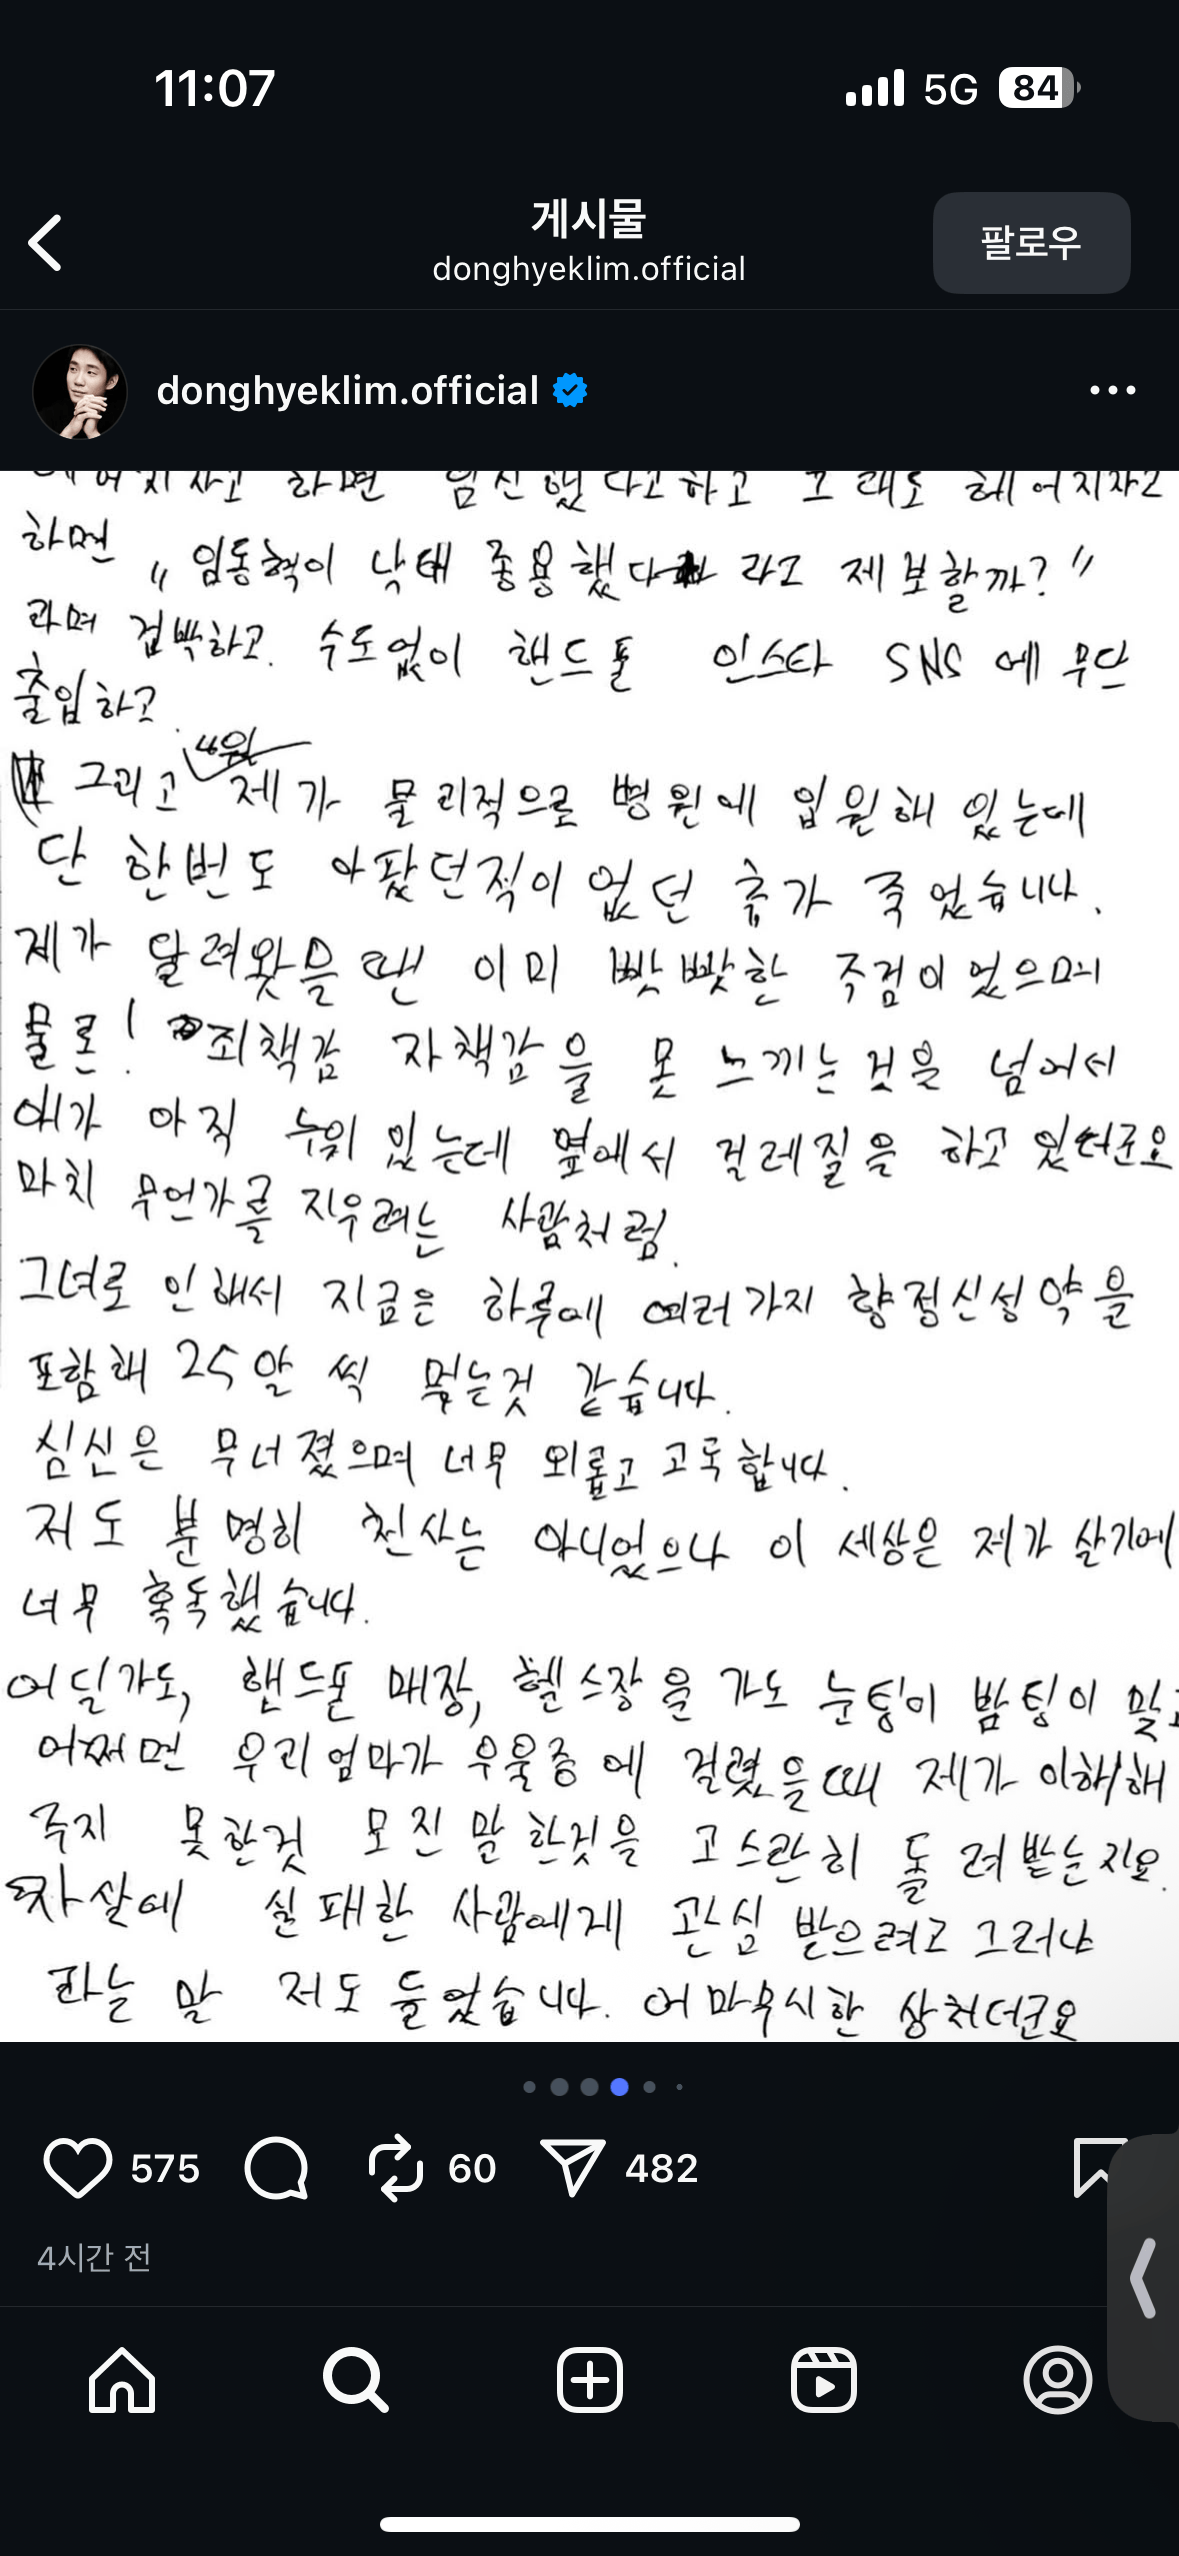 11:07
5G
84
게시물
donghyeklim.official
팔로우
donghyeklim.official
헤어지자고 하면 임신했다고하고 그래도 헤어지자고
하면 "임동혁이 낙태 종용했다 라고 제보할까?"
라며 겁박하고. 수도없이 핸드폰 인스타 SNS에 무단
출입하고.
4월
그리고 제가 물리적으로 병원에 입원해 있는데
단 한번도 아팠던적이 없던 가 죽었습니다.
제가 달려왔을땐 이미 빳빳한 주검이었으며
물론! 죄책감 자책감을 못 느끼는 것을 넘어서
애가 아직 누워 있는데 옆에서 걸레질을 하고 있더군요
마치 무언가를 지우려는 사람처럼.
그녀로 인해서 지금은 하루에 여러가지 향정신성약을
포함해 25알 씩 먹는것 같습니다.
심신은 무너졌으며 너무 외롭고 고독합니다.
저도 분명히 천사는 아니었으나 이 세상은 제가 살기에
너무 혹독했습니다.
어딜가도, 핸드폰 매장, 헬스장을 가도 눈팅이 밤팅이 말고
어쩌면 우리 엄마가 우울증에 걸렸을때 제가 이해해
주지 못한것 모진 말 한것을 고스란히 돌려받는지요.
자살에 실패한 사람에게 관심 받으려고 그러냐
라는 말 저도 들었습니다. 어마무시한 상처더군요
575
60
482
4시간 전